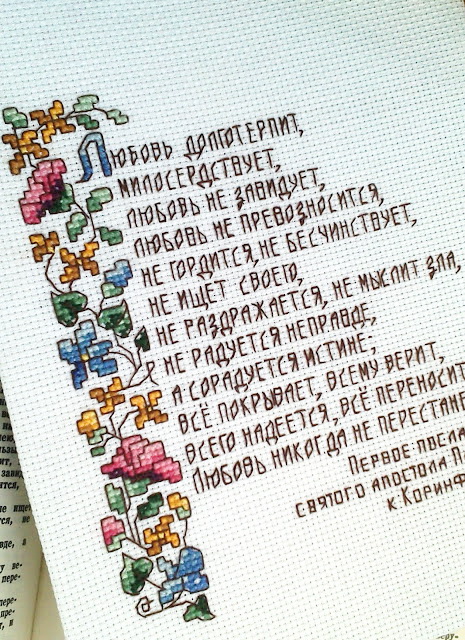 Любовь долготерпит,
милосердствует,
любовь не завидует,
любовь не превозносится,
не гордится, не бесчинствует,
не ищет своего,
не раздражается, не мыслит зла,
не радуется неправде,
а сорадуется истине;
всё покрывает, всему верит,
всего надеется, всё переносит
Любовь никогда не перестаёт
Первое
святого апостола
к